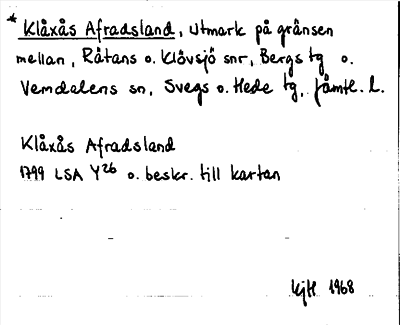 * Klåxås Afradsland, utmark på gränsen
mellan, Råtans o. Klövsjö snr, Bergs tg o.
Vemdalens sn, Svegs o. Hede tg, Jämtl. l.
Klåxås Afradsland
1799 LSA Y26 o. beskr. till kartan
KjH 1968